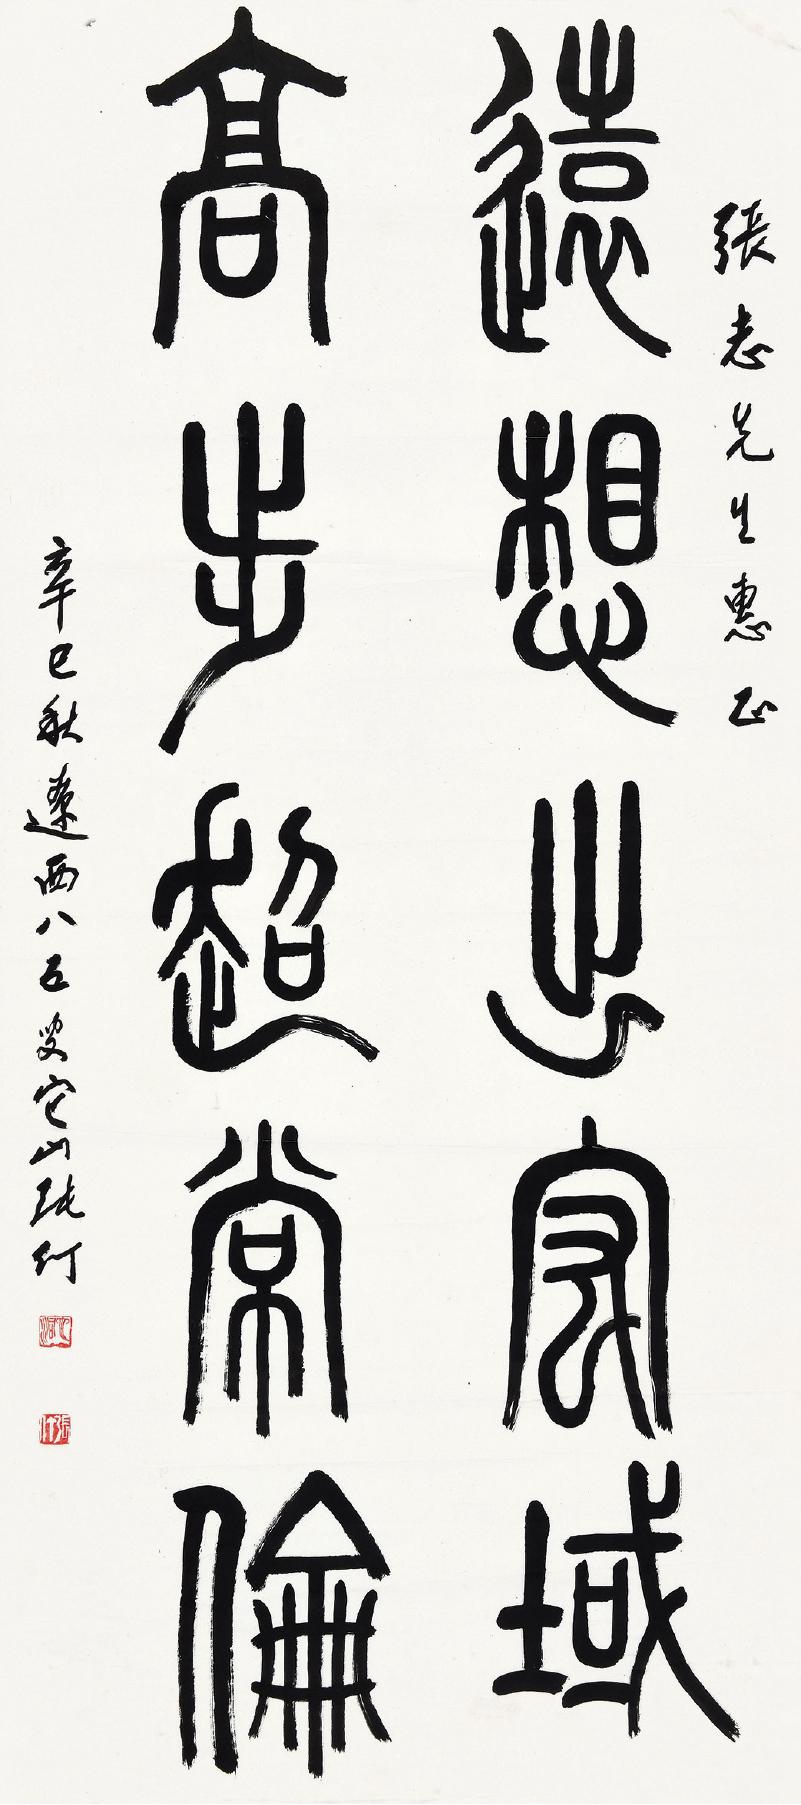 張志先生惠正
遠想出宏域
高步超常倫
辛巳秋遼西八五叟它山張仃
張仃